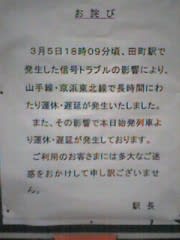 お詫び
3月5日18時09分頃、田町駅で
発生した信号トラブルの影響により、
山手線・京浜東北線で長時間にわ
たり運休・遅延が発生いたしました。
また、その影響で本日始発列車よ
り運休・遅延が発生しております。
ご利用のお客さまには多大なご迷
惑をおかけして申し訳ございませ
ん。
駅長